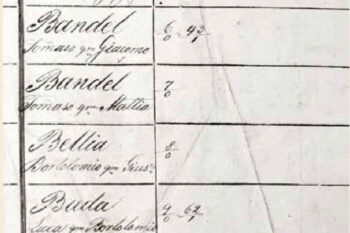 Bandel 6 43
Tomaso qm Giacomo 0
Bandel 7
Tomaso qm Mattia 0
Bellia 8
Bortolomio qm Gius. 0
Buda 9 62
Luca qm Bortolomio 0